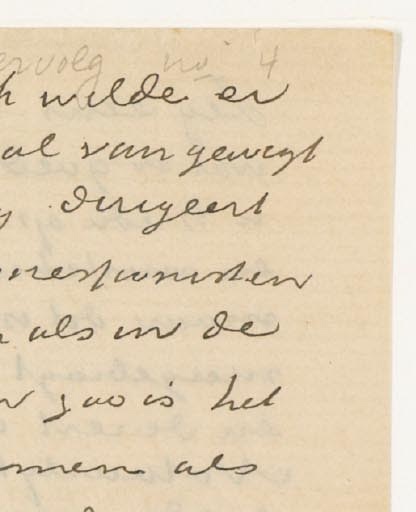 ervolg no 4
h wilde er
al van gewigt
dirigeert
mpressionisten
als in de
zoo is het
men als